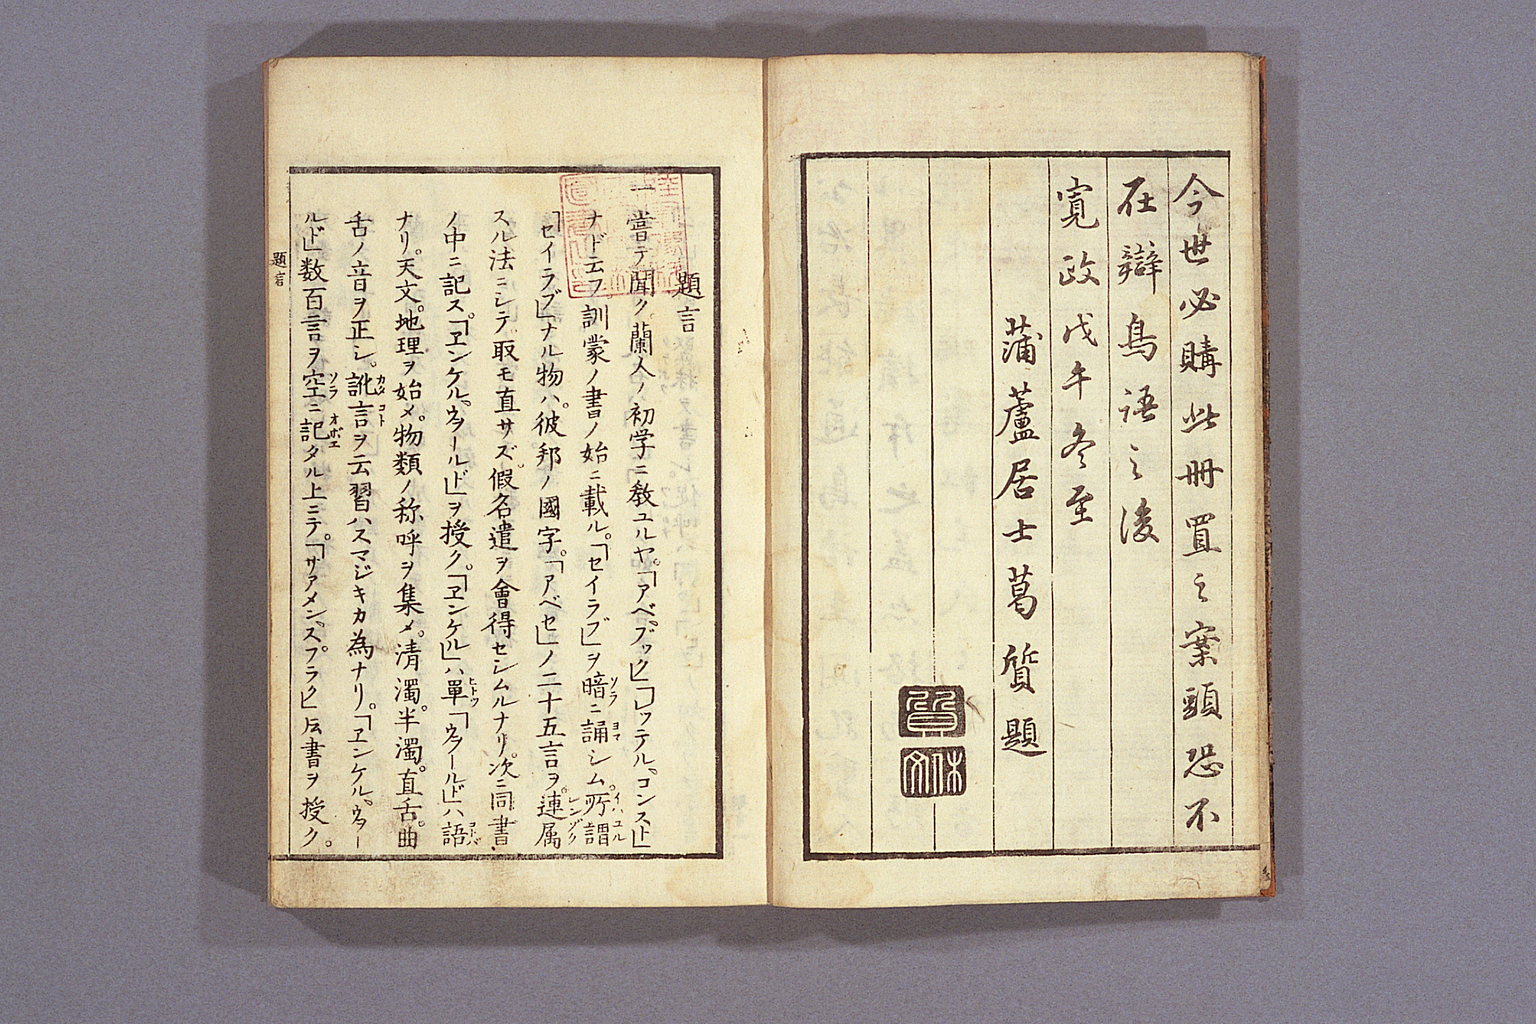 今世必購此冊置之案頭恐不
在辯鳥語之後
寛政戊午冬至
蒲蘆居士葛質題
題言
一嘗テ聞ク蘭人ノ初学ニ教ユルヤ。「アベ、ブック」「レッテル、コンスト」
ナド云フ訓蒙ノ書ノ始ニ載ル。「セイラブ」ヲ暗ニ誦シム。所謂
「セイラブ」ナル物ハ。彼邦ノ國字。「アベセ」ノ二十五言ヲ。連属
スル法ニシテ取モ直サズ假名遣ヲ會得セシムルナリ。次ニ同書
ノ中ニ記ス。「ヱンケル、ウヲールド」ヲ授ク。「ヱンケル」ハ單「ウヲールド」ハ語
ナリ。天文。地理ヲ始メ。物類ノ称呼ヲ集メ。清濁。半濁。直舌。曲
舌ノ音ヲ正シ。訛言ヲ云習ハスマジキカ為ナリ。「ヱンケル、ウヲー
ルド」数百言ヲ空ニ記タル上ニテ。「サアメン、スプラク」ノ書ヲ授ク。
題言